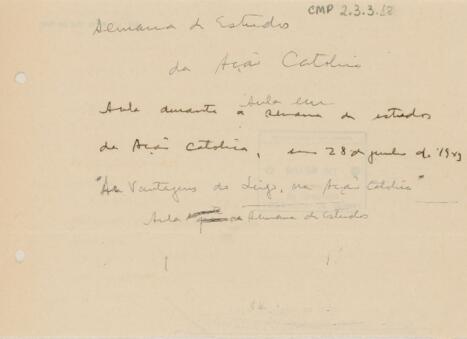 CMP 2.3.3.
Semana de Estudos
da Ação Catolica
Aula em
Aula durante a semana de estudos
da Ação Catolica, em 28 de junho de 1949
"As Vantagens do Leigo, na Ação Catolica"
Aula na Semana de Estudos